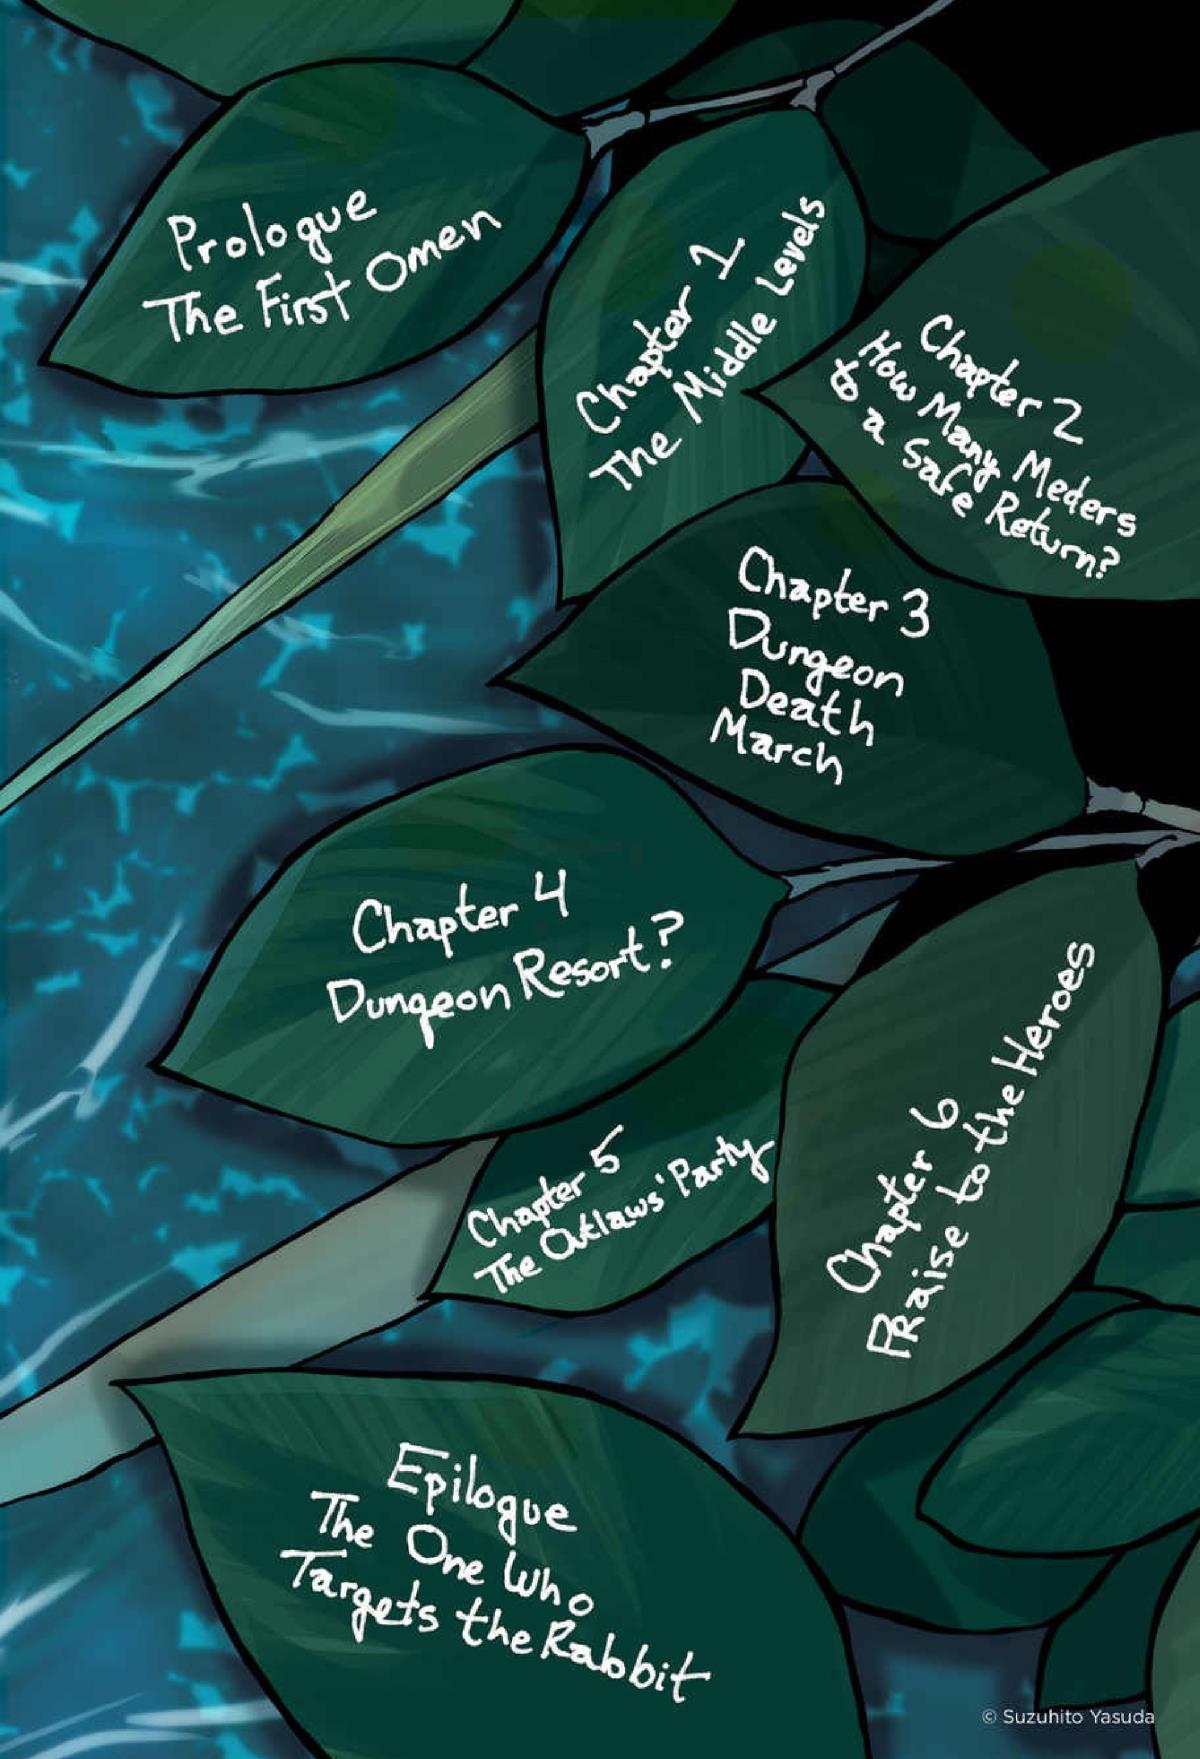 Prologue
The First Omen
Chapter 1
The Middle Levels
Chapter 2
How Many Meders
to a Safe Return?
Chapter 3
Dungeon
Death
March
Chapter 4
Dungeon Resort?
Chapter 5
The Outlaws' Party
Chapter 6
PRaise to the Heroes
Epilogue
The One Who
Targets the Rabbit
© Suzuhito Yasuda